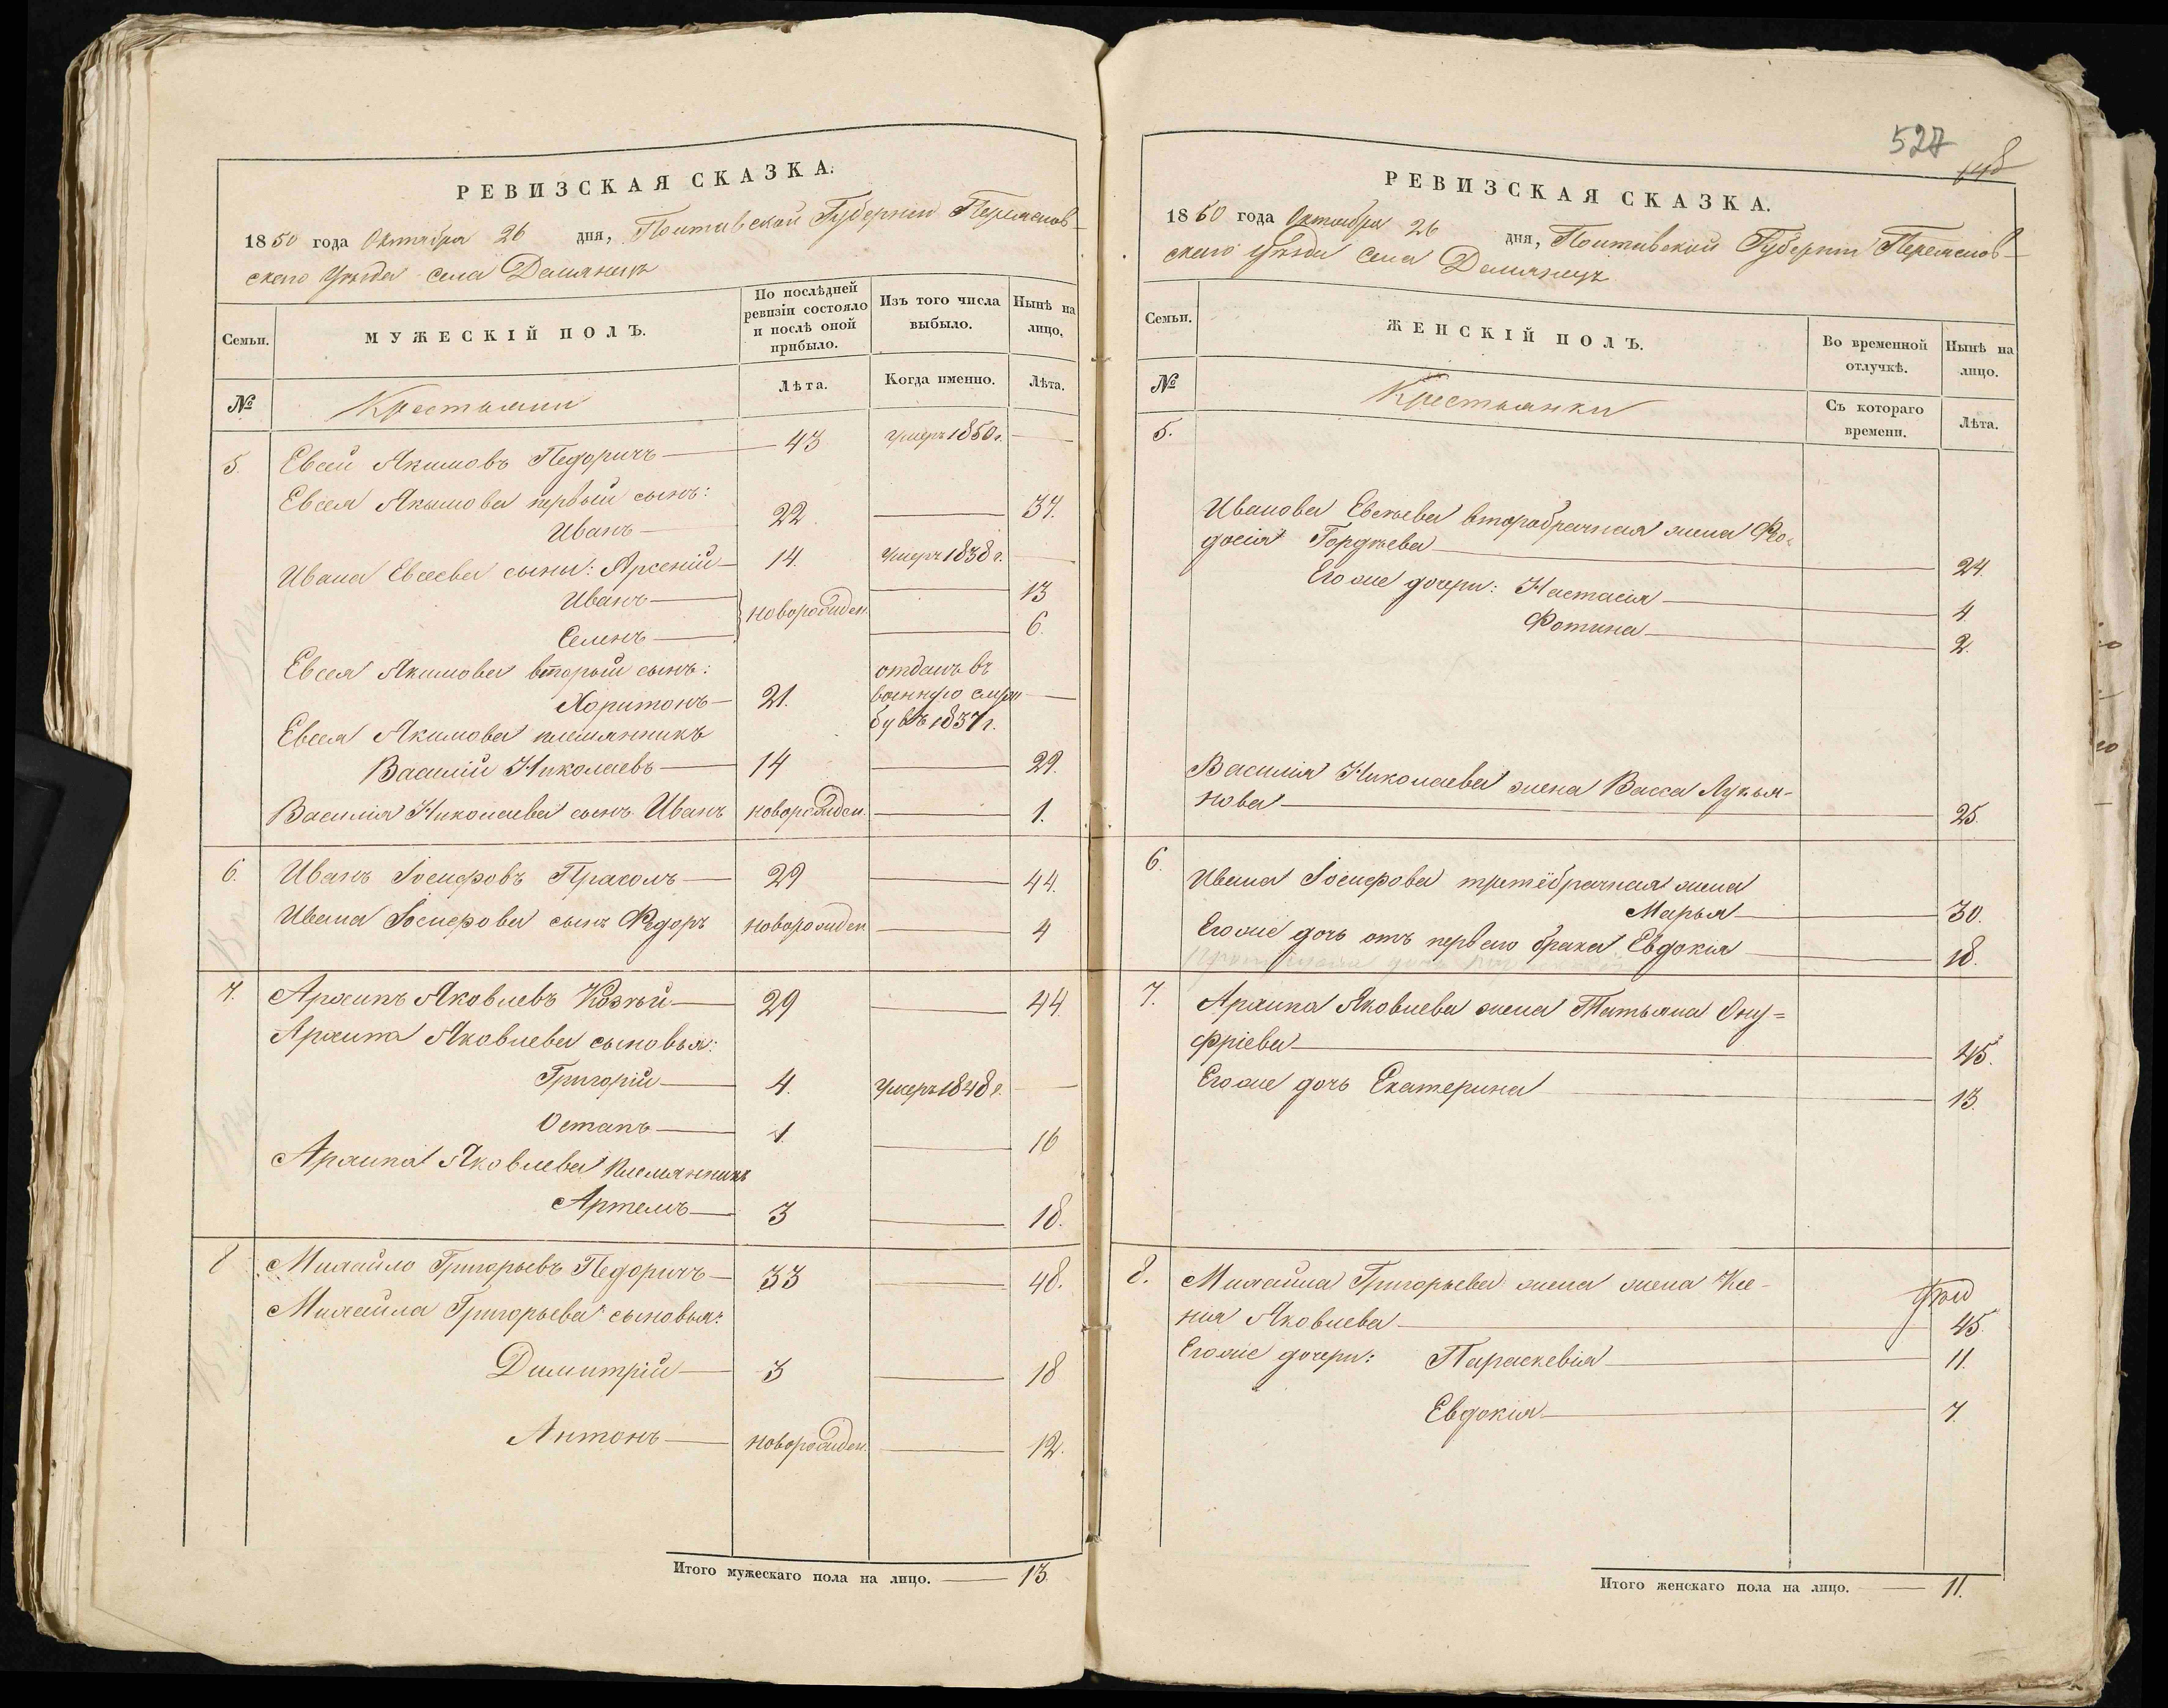 РЕВИЗСКАЯ СКАЗКА.
1850 года Октября 26 дня, Полтавской Губерніи Переяслов-
скаго Уѣзда села Демянецъ
Семьи.
МУЖЕСКІЙ ПОЛЪ.
По послѣдней ревизіи состояло и послѣ оной прибыло.
Изъ того числа выбыло.
Нынѣ на лицо.
№
Крестьяни
Лѣта.
Когда именно.
Лѣта.
5. Евсей Якимовъ Педоричъ 43 умеръ 1850 г.
Евсея Якимова первый сынъ:
Иванъ 22. 37.
Ивана Евсеева сыны: Арсеній 14. умеръ 1838 г.
Иванъ новорожден. 13
Семенъ 6.
Евсея Якимова вторый сынъ:
Харитонъ 21. отданъ въ военную служ бу въ 1837 г.
Евсея Якимова племянникъ
Василій Николаевъ 14 29.
Василія Николаева сынъ Иванъ новорожден. 1.
6. Иванъ Іосифовъ 29 44.
Ивана Іосифова сынъ Федоръ новорожден 4
7. Архипъ Яковлевъ Козѣй 29 44
Архипа Яковлева сыновья:
Григорій 4. умеръ 1848 г.
Остапъ 1. 16
Архипа Яковлева племянникъ
Артемъ 3 18.
8 Михайло Григорьевъ Педоричъ 33 48.
Михайла Григорьева сыновья:
Димитрій 3 18
Антонъ новорожден. 12.
Итого мужескаго пола на лицо. 13.
527
148
РЕВИЗСКАЯ СКАЗКА.
1850 года Октября 26 дня, Полтавской Губерніи Переяслов-
скаго Уѣзда села Демянецъ
Семьи.
ЖЕНСКІЙ ПОЛЪ.
Во временной отлучкѣ.
Нынѣ на лицо.
№
Крестьянки
Съ котораго времени.
Лѣта.
5.
Иванова Евсѣева второбрачная жена Фео-
досія Гордѣева 24.
Его же дочери: Настасія 4.
Фотина 2.
Василія Николаева жена Васса Лукья-
нова 25.
6. Ивана Іосифова третёбрачная жена
Марья 30.
Его же дочь отъ перваго брака Евдокія 18.
7. Архипа Яковлева жена Татьяна Ону=
фріева 45.
Его же дочь Екатерина 13.
8. Михайла Григорьева жена жена Ксе-
нія Яковлева 45.
Его же дочери: Параскевія 11.
Евдокія 7.
Итого женскаго пола на лицо. 11.